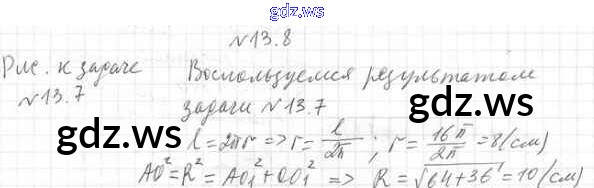 gdz.ws
№13.8
Рис. к задаче
№13.7
Воспользуемся результатом
задачи №13.7
gdz.ws
gdz.ws
l=2πr => r = l/2π ; r = 16π/2π = 8 (см)
AO² = R² = AO₁² + OO₁² => R = √64+36 = 10 (см)